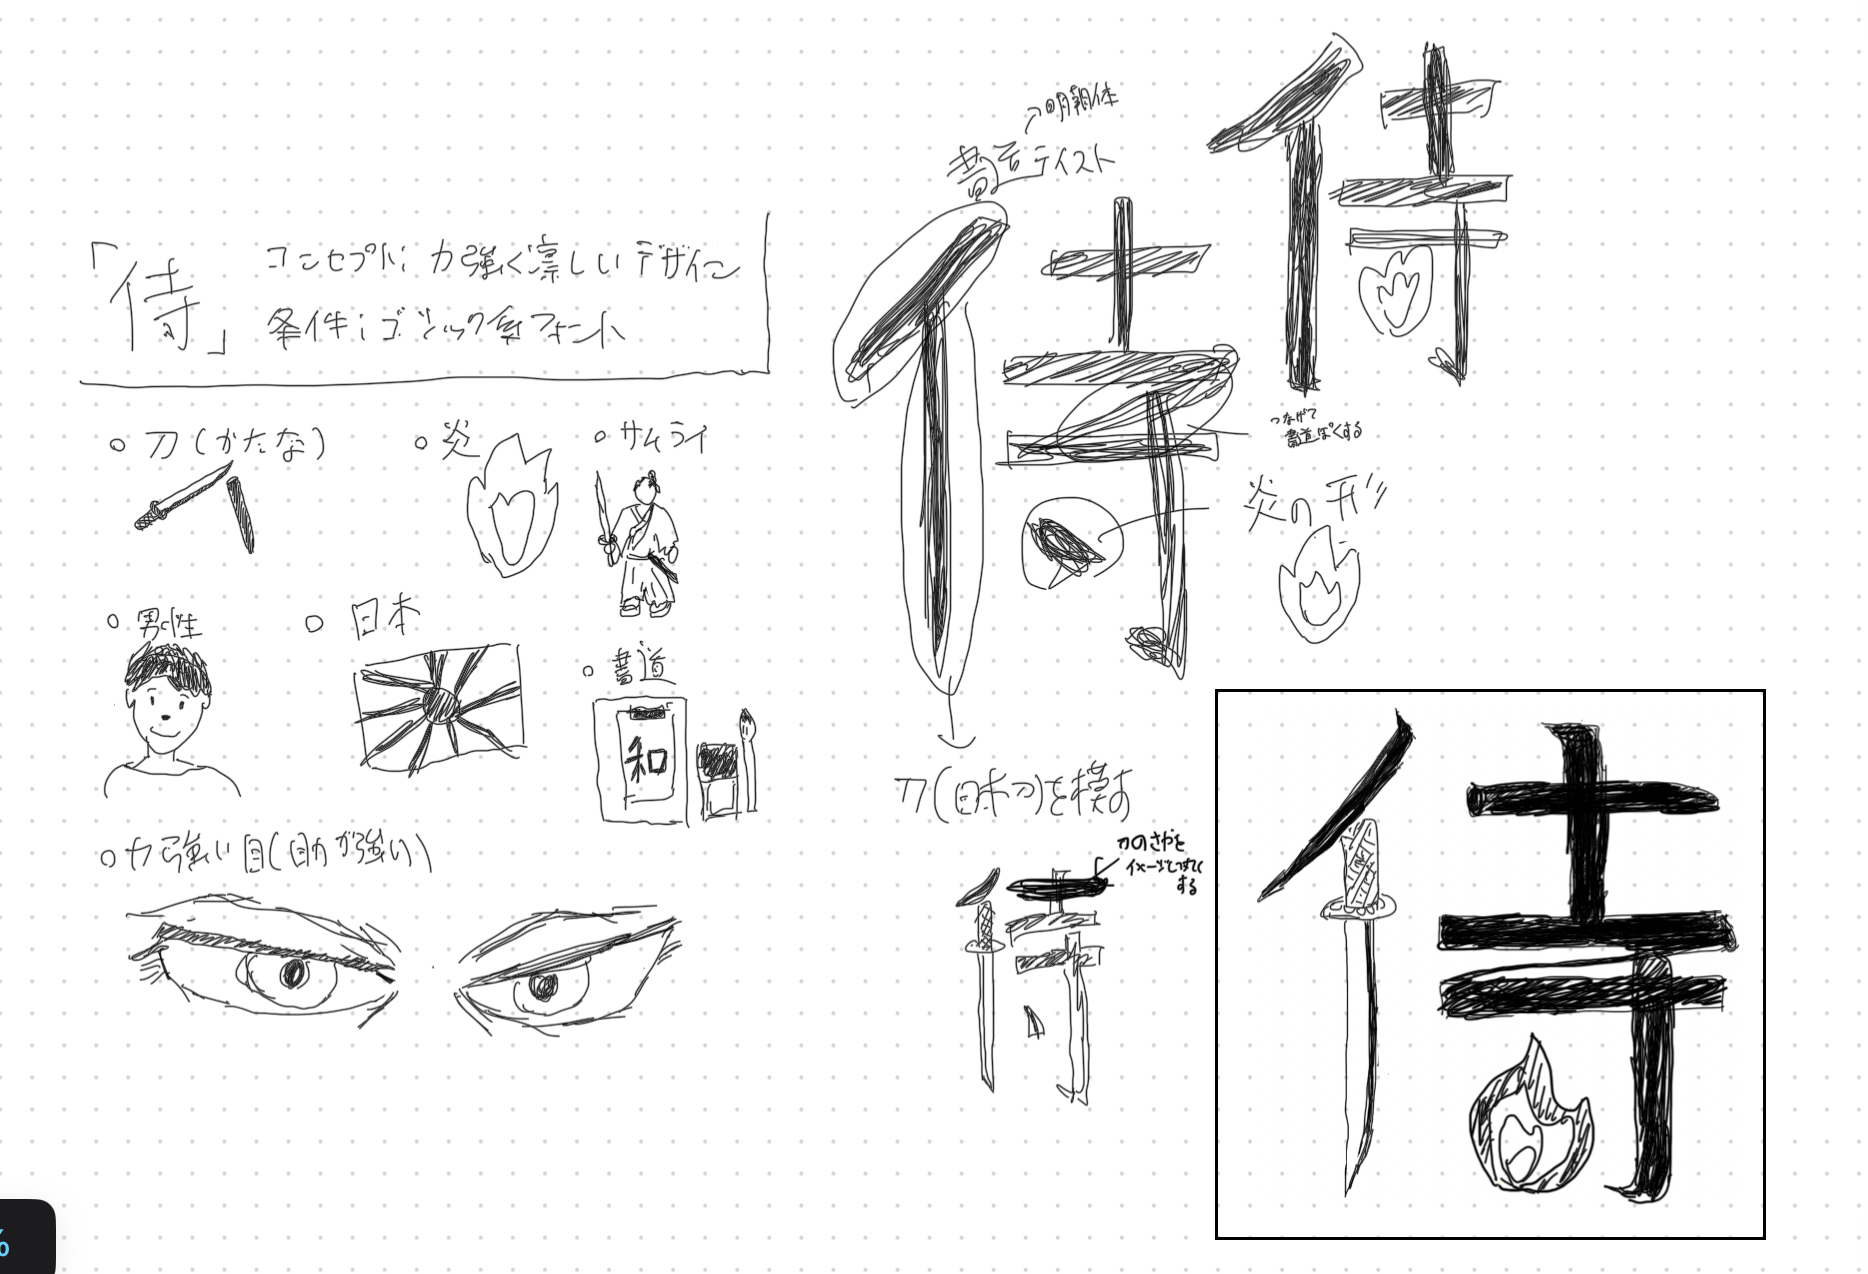 「侍」
コンセプト：力強く凛しいデザイン
条件：ゴシック系フォント
○ 刀(かたな)
○ 炎
○ サムライ
○ 男性
○ 日本
○ 書道
和
○ 力強い目(目力が強い)
明朝体
書道テイスト
侍
侍
つなげて
書道っぽくする
炎の形
刀(日本刀)を模す
刀のさやを
イメージして
する
侍
侍
%